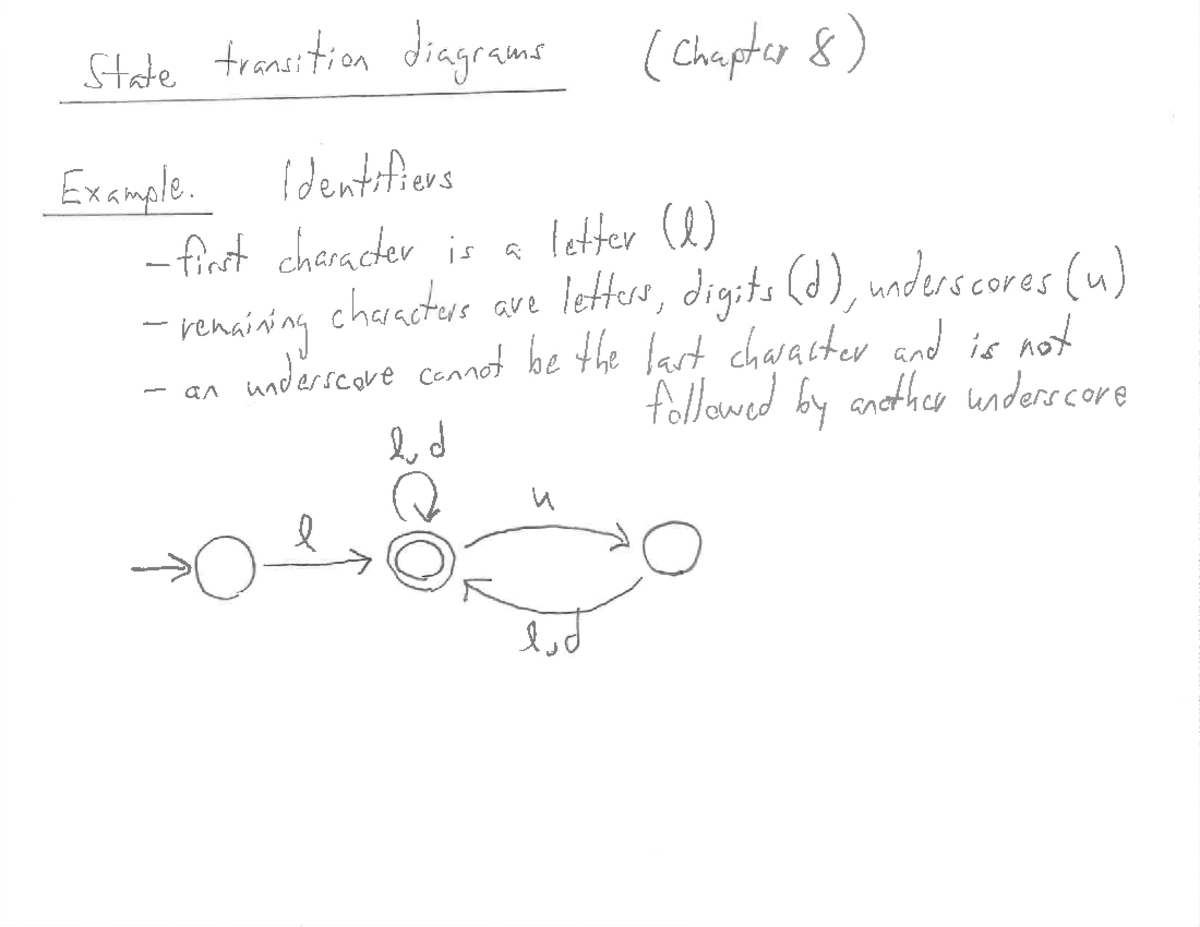 State transition diagrams (Chapter 8)
Example. Identifiers
- first character is a letter (l)
- remaining characters are letters, digits (d), underscores (u)
- an underscore cannot be the last character and is not
followed by another underscore
l, d
l
u
l, d